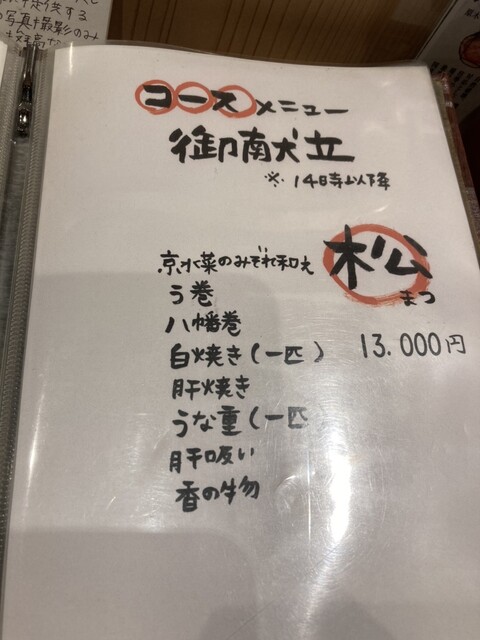 コースメニュー
御献立
※14時以降
松
まつ
13.000円
京水菜のみぞれ和え
う巻
八幡巻
白焼き(一匹)
肝焼き
うな重(一匹
肝吸い
香の物